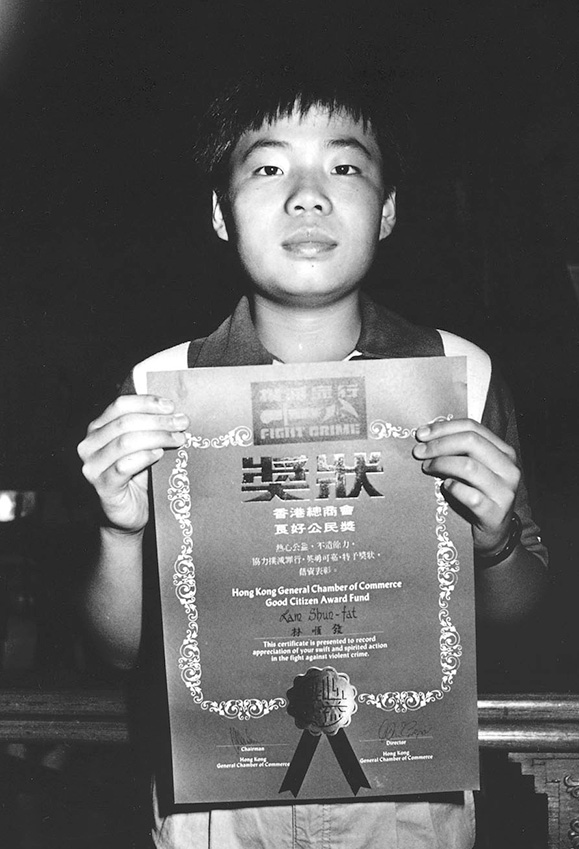 撲滅罪行
FIGHT CRIME
獎狀
香港總商會
良好公民獎
熱心公益，不遺餘力，
協力撲滅罪行，英勇可嘉，特予獎狀，
藉資表彰。
Hong Kong General Chamber of Commerce
Good Citizen Award Fund
Lam Shun-fat
林順發
This certificate is presented to record
appreciation of your swift and spirited action
in the fight against violent crime.
Chairman
Hong Kong
General Chamber of Commerce
Director
Hong Kong
General Chamber of Commerce